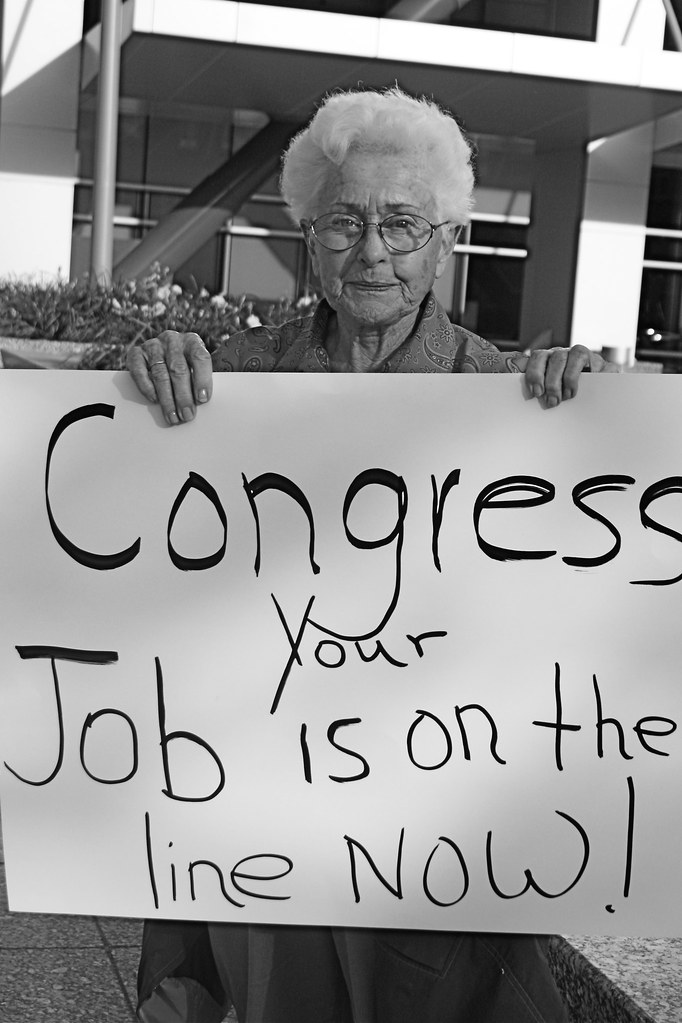 Congress
Your
Job is on the
line NOW!